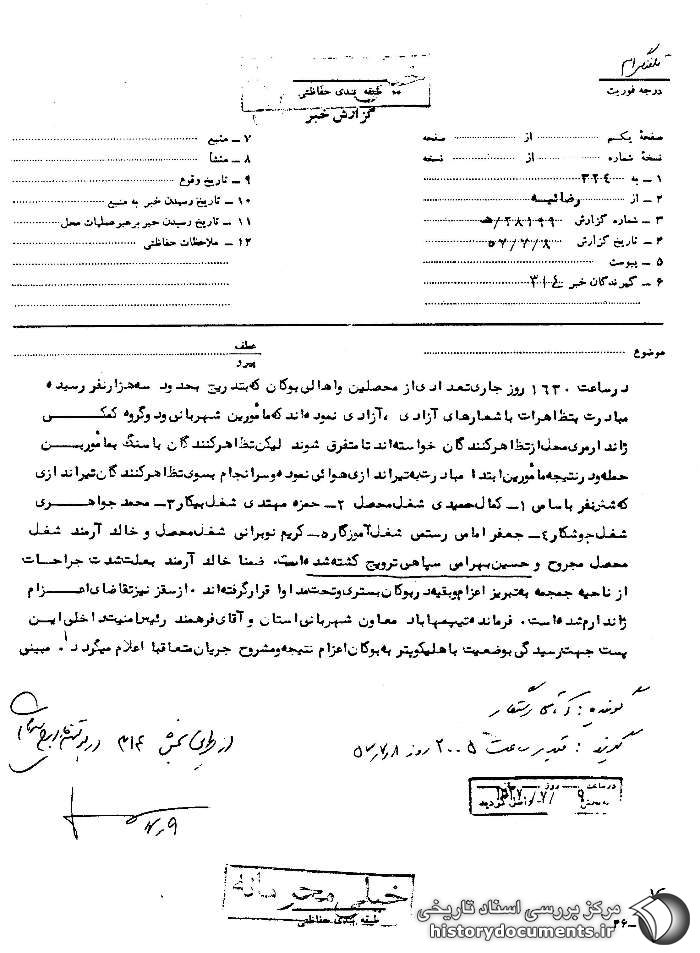 تلفنگرام
درجه فوریت
طبقه بندی حفاظتی
گزارش خبر
صفحهٔ یکم از صفحه
نسخهٔ شماره از نسخه
۱ ـ به ۳۲۴
۲ ـ از رضائیه
۳ ـ شماره گزارش ۲۸۱۹۹/هـ
۴ ـ تاریخ گزارش ۵۷/۷/۸
۵ ـ پیوست
۶ ـ گیرندگان خبر ۳۱۴
۷ ـ منبع
۸ ـ منشأ
۹ ـ تاریخ وقوع
۱۰ ـ تاریخ رسیدن خبر به منبع
۱۱ ـ تاریخ رسیدن خبر برهبر عملیات محل
۱۲ ـ ملاحظات حفاظتی
موضوع
عطف
پیرو
در ساعت ۱۶۳۰ روز جاری تعدادی از محصلین و اهالی بوکان که بتدریج بحدود سه هزار نفر رسیده
مبادرت بتظاهرات با شعارهای آزادی ، آزادی نموده اند که مأمورین شهربانی و دو گروه کمکی
ژاندارمری محل از تظاهرکنندگان خواسته اند تا متفرق شوند لیکن تظاهرکنندگان با سنگ بمأمورین
حمله و در نتیجه مأمورین ابتدا مبادرت به تیراندازی هوائی نموده و سرانجام بسوی تظاهرکنندگان تیراندازی
که شش نفر باسامی ۱ـ کمال حمیدی شغل محصل ۲ـ حمزه مهتدی شغل بیکار ۳ـ محمد جواهری
شغل جوشکار ۴ـ جعفر امامی رستمی شغل آموزگار ۵ـ کریم نوبرانی شغل محصل و خالد آرمند شغل
محصل مجروح و حسین بهرامی سپاهی ترویج کشته شده است. ضمنا خالد آرمند بعلت شدت جراحات
از ناحیه جمجمه به تبریز اعزام و بقیه در بوکان بستری و تحت مداوا قرار گرفته اند . از سقز نیز تقاضای اعزام
ژاندارم شده است . فرمانده تیپ مهاباد معاون شهربانی استان و آقای فرهمند رئیس امنیت داخلی این
پست جهت رسیدگی بوضعیت با هلیکوپتر به بوکان اعزام نتیجه و مشروح جریان متعاقبا اعلام میگردد . مبینی
گوینده : رستگار
گیرنده : قدیر ساعت ۲۰۰۵ روز ۵۷/۷/۸
از طرف بخش ۳۱۴
۷/۹
در ساعت روز
۹ /۷/
به بخش واصل گردید
خیلی محرمانه
طبقه بندی حفاظتی
۳۶ـ
مرکز بررسی اسناد تاریخی
historydocuments.ir